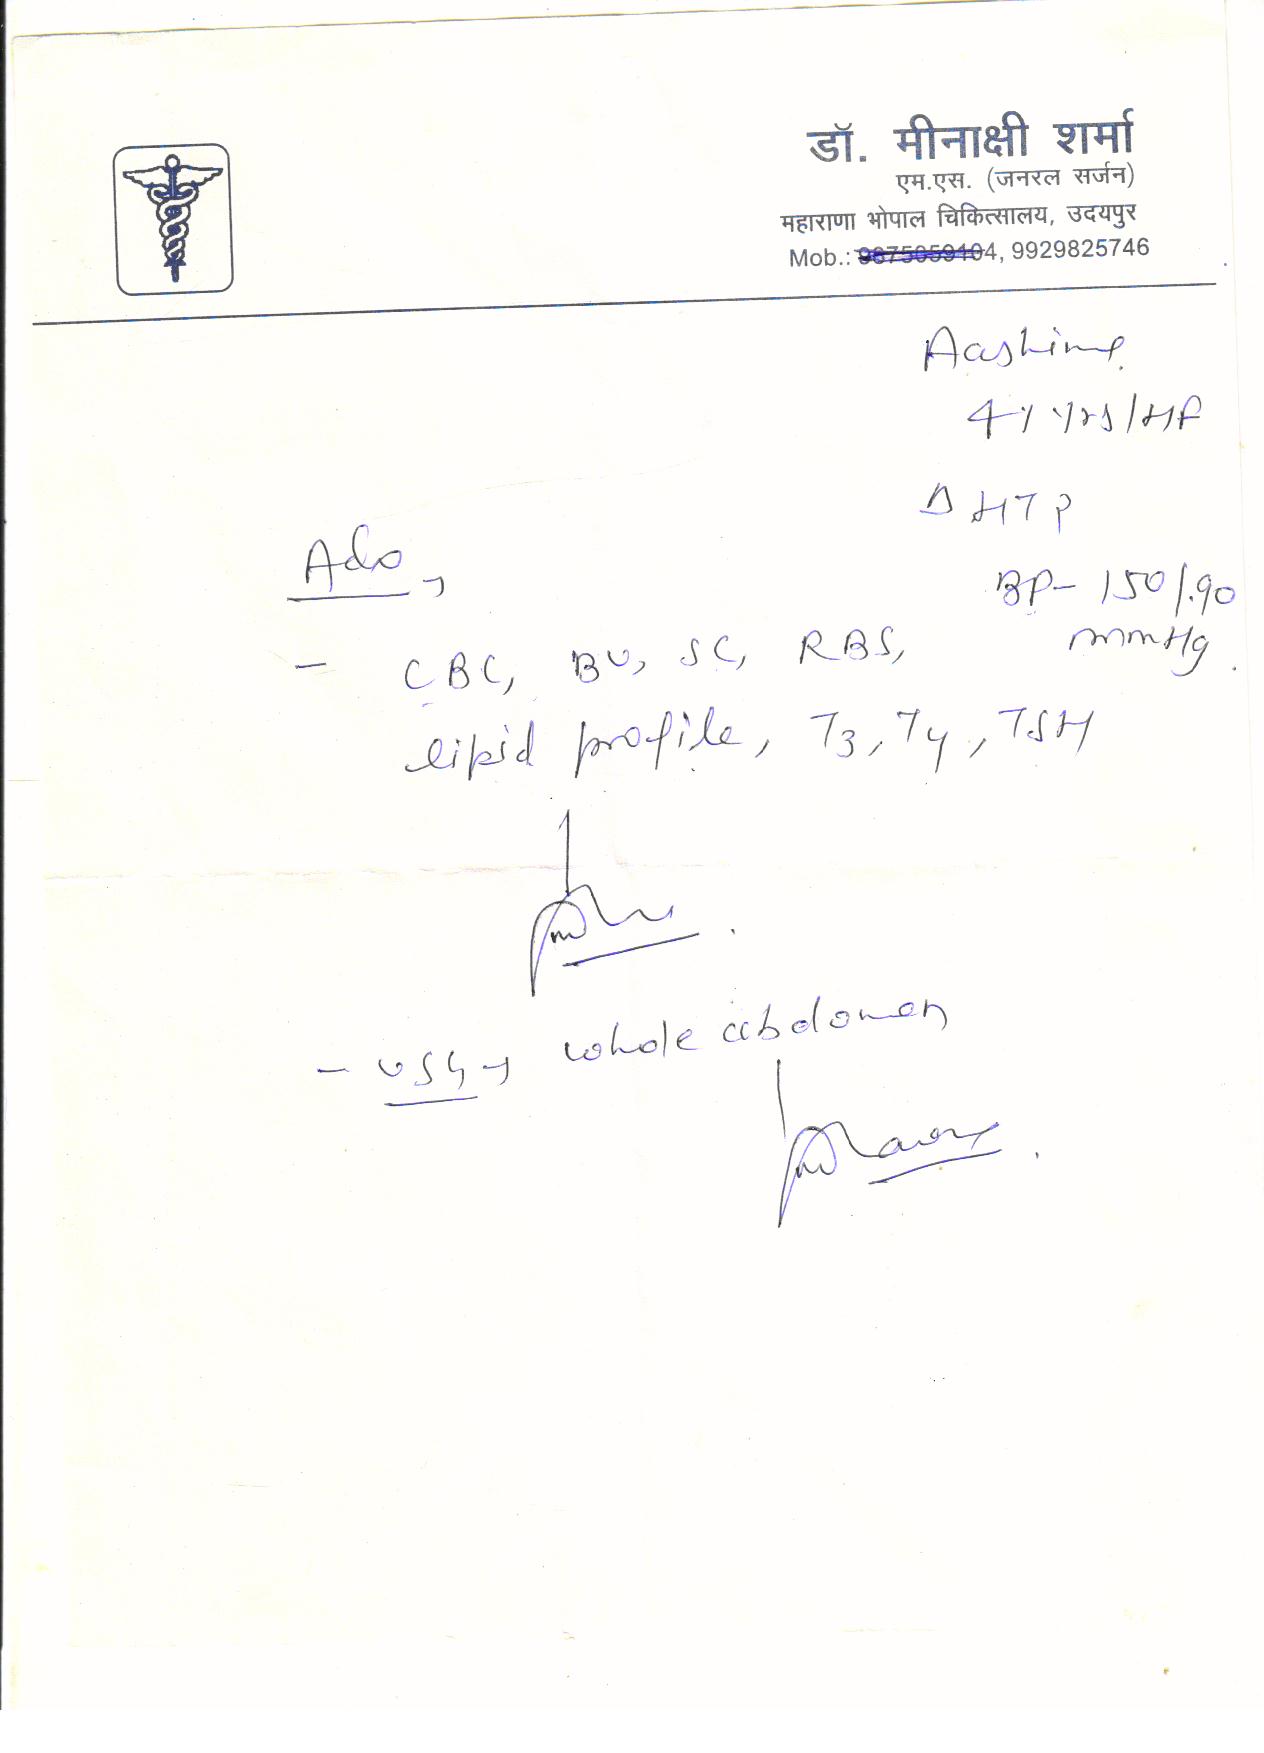 डॉ. मीनाक्षी शर्मा
एम.एस. (जनरल सर्जन)
महाराणा भोपाल चिकित्सालय, उदयपुर
Mob.: 9675059104, 9929825746
Aashima
41 yrs/HF
Δ HTP
BP- 150/90
mmHg.
Adv,
- CBC, BU, SC, RBS,
lipid profile, T3, T4, TSH
- USG → whole abdomen